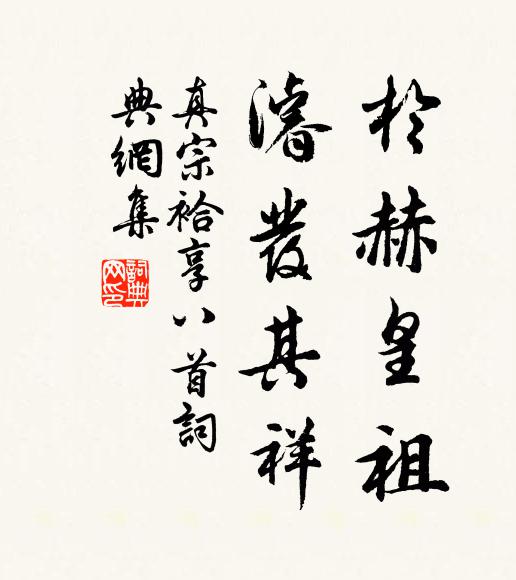 於赫皇祖
濬發其祥
真宗祫享八首詞
典網集
詞典網印